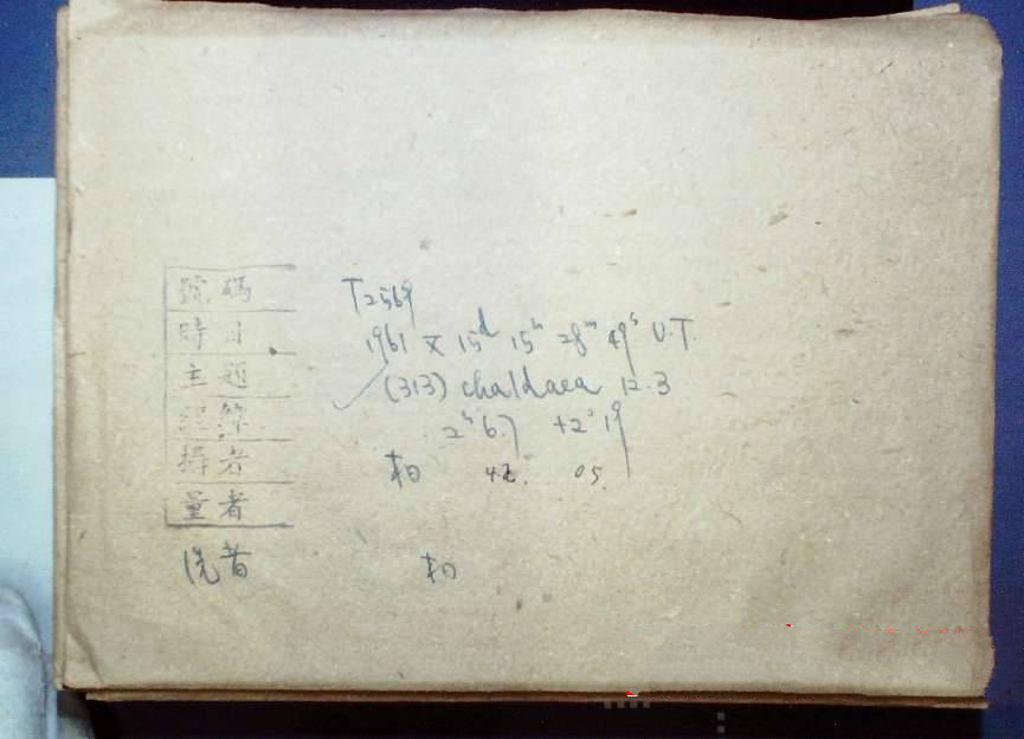 號碼 T2569
時日 1961 X 15d 15h 28m 49s U.T.
主題 (313) chaldaea 12.3
經緯 2h 6.7 +2° 19
攝者 柏 42. 05.
量者
洗者 柏